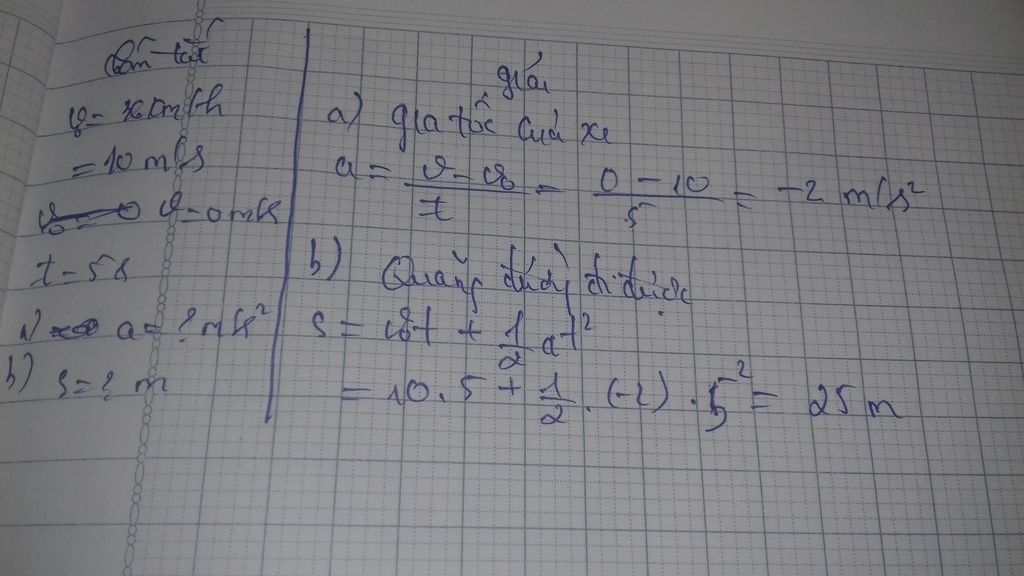 Tóm tắt
v₀ = 36 km/h
= 10 m/s
v = 0 m/s
t = 5s
a) a = ? m/s²
b) s = ? m
giải
a) gia tốc của xe
a = \frac{v - v₀}{t} = \frac{0 - 10}{5} = -2 m/s²
b) Quãng đường đi được
s = v₀t + \frac{1}{2} at²
= 10 . 5 + \frac{1}{2} . (-2) . 5² = 25 m